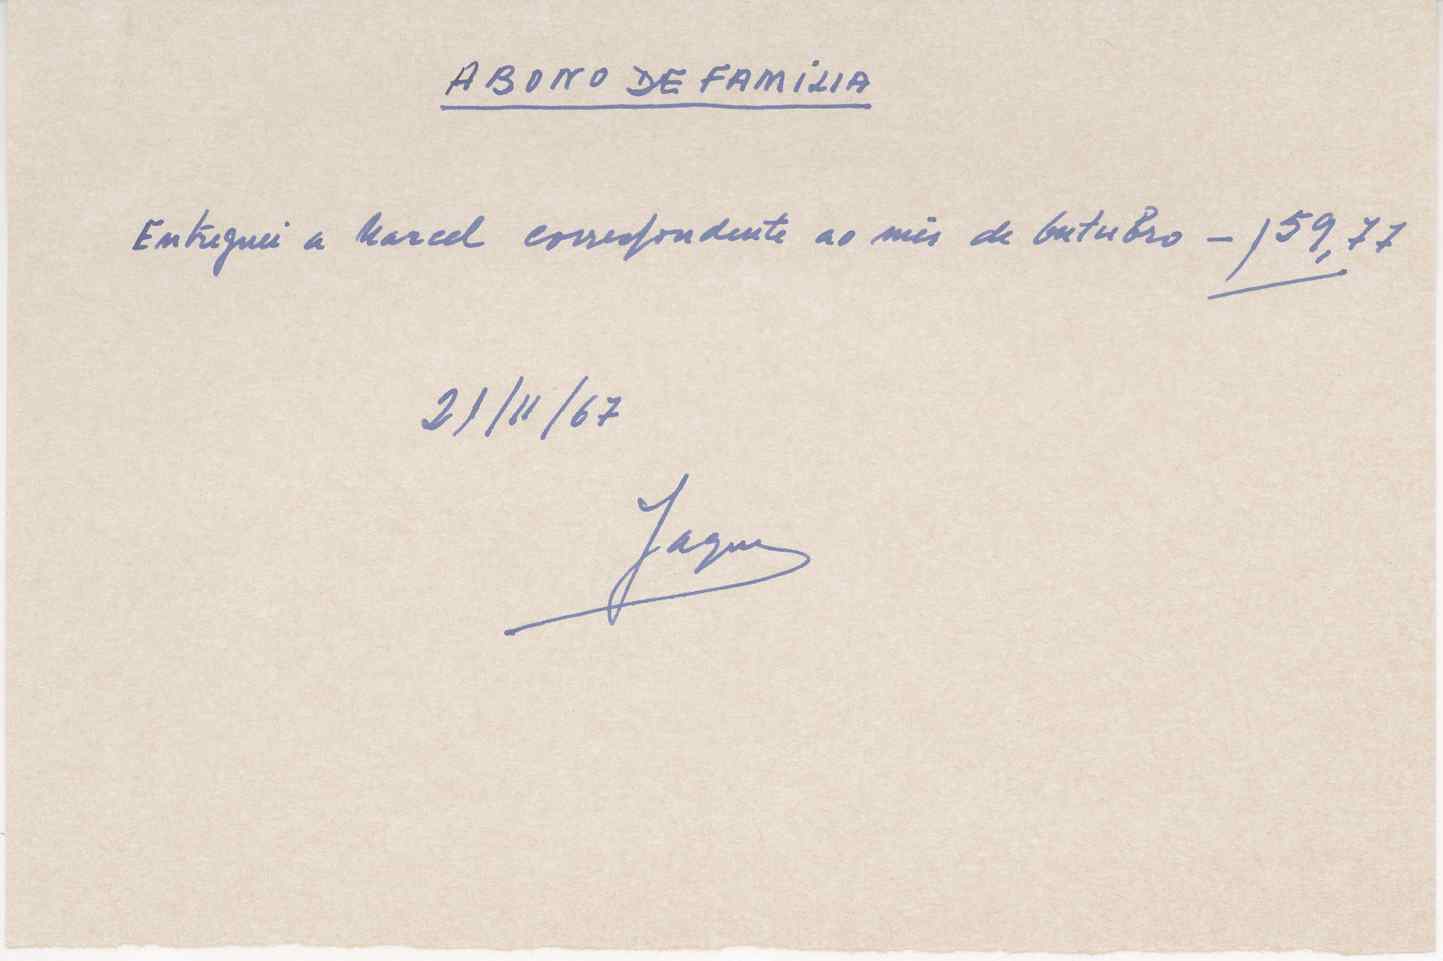 ABONO DE FAMÍLIA
Entreguei a Marcel correspondente ao mês de Outubro — 159,77
21/11/67
Jaques